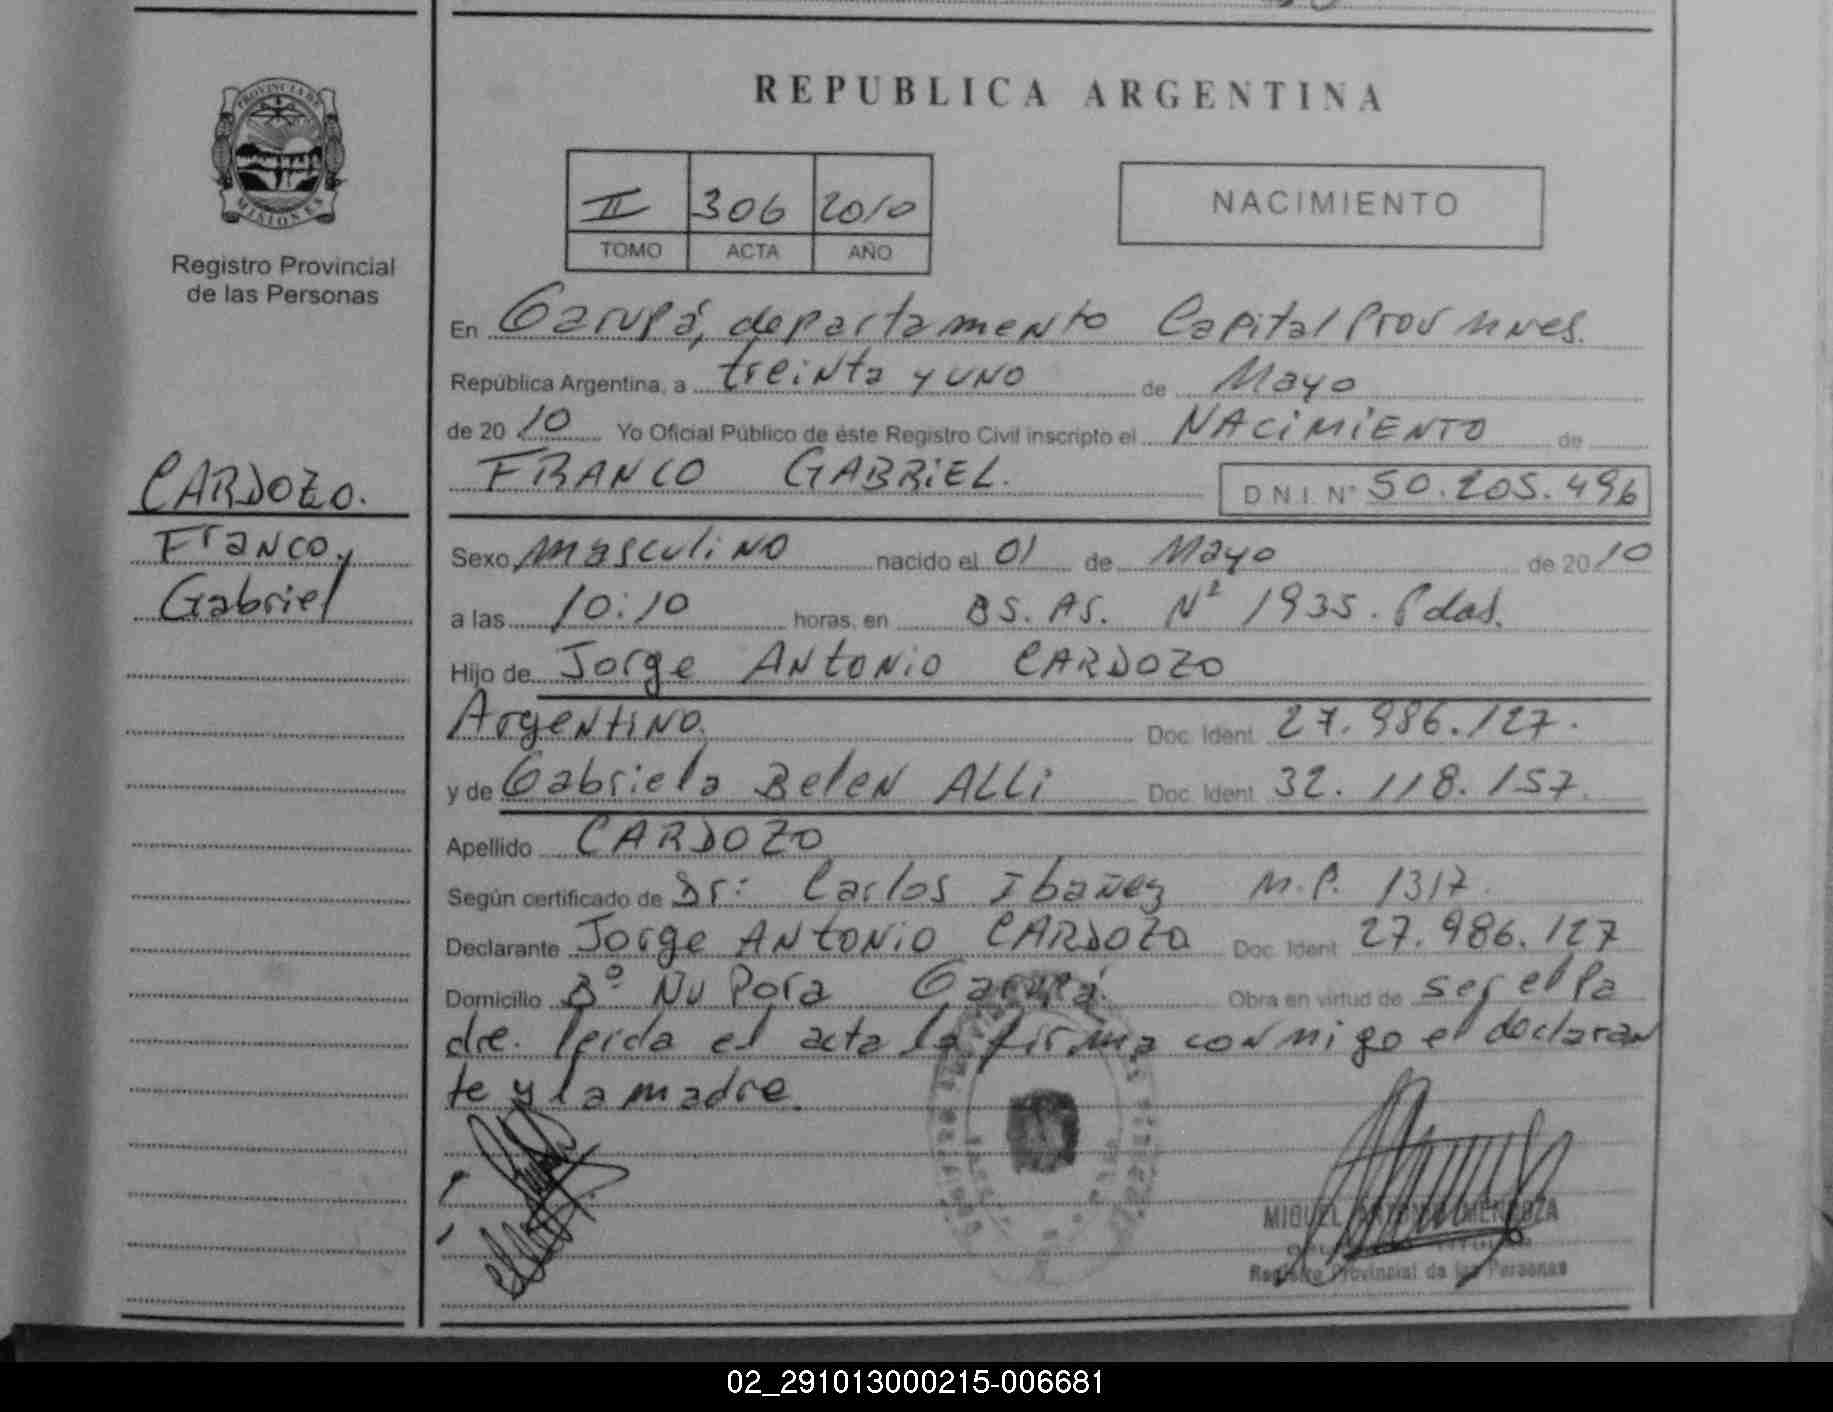 PROVINCIA DE
MISIONES
Registro Provincial
de las Personas
CARDOZO.
Franco,
Gabriel
REPUBLICA ARGENTINA
II 306 2010
TOMO ACTA AÑO
NACIMIENTO
En Garupá, departamento Capital Prov Mnes.
República Argentina, a treinta y uno de Mayo
de 20 10 Yo Oficial Público de éste Registro Civil inscripto el NACIMIENTO de
FRANCO GABRIEL. D.N.I. N° 50.205.496
Sexo masculino nacido el 01 de Mayo de 2010
a las 10:10 horas, en BS. AS. Nº 1935. Pdas.
Hijo de Jorge Antonio CARDOZO
Argentino. Doc. Ident. 27.986.127.
y de Gabriela Belen ALLI Doc. Ident. 32.118.157.
Apellido CARDOZO
Según certificado de Dr: Carlos Ibañez M.P. 1317.
Declarante Jorge Antonio CARDOZO Doc. Ident. 27.986.127
Domicilio Bº Ñu Pora Garupá. Obra en virtud de ser el Pa
dre. leida el acta la firma conmigo el declaran
te y la madre.
MIGUEL ANTONIO MENDOZA
Registro Provincial de las Personas
02_291013000215-006681